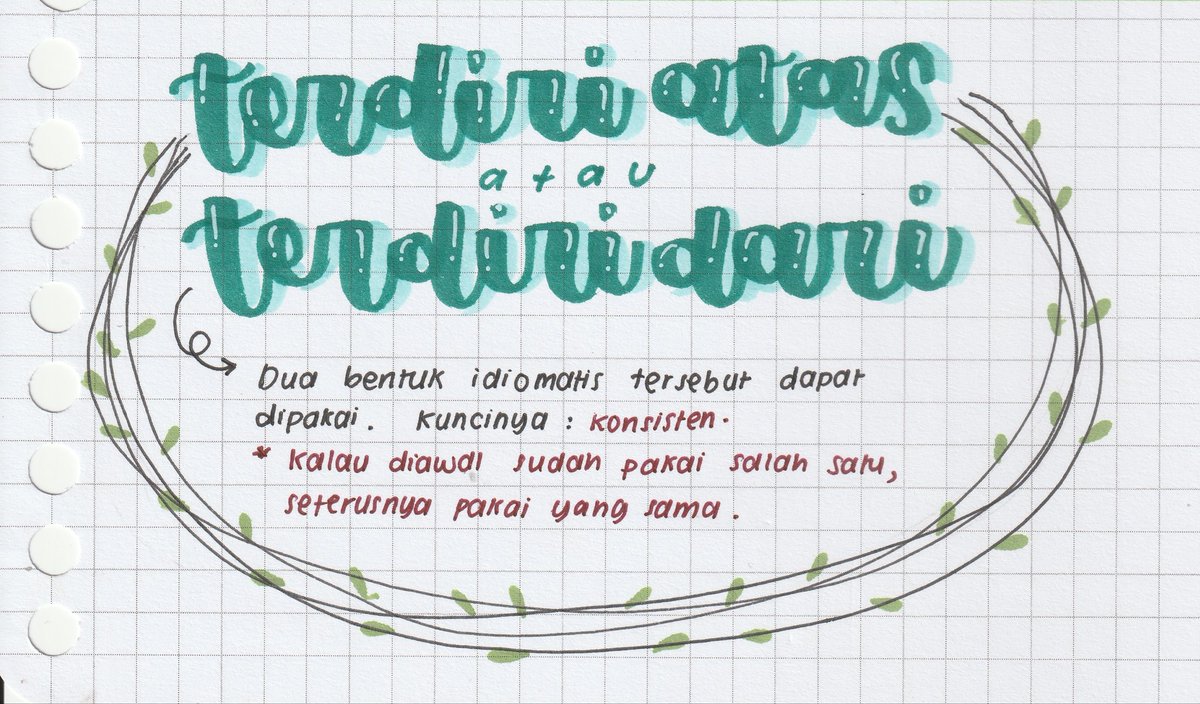 terdiri atas
atau
terdiri dari
Dua bentuk idiomatis tersebut dapat
dipakai. Kuncinya : konsisten.
* Kalau diawal sudah pakai salah satu,
seterusnya pakai yang sama.